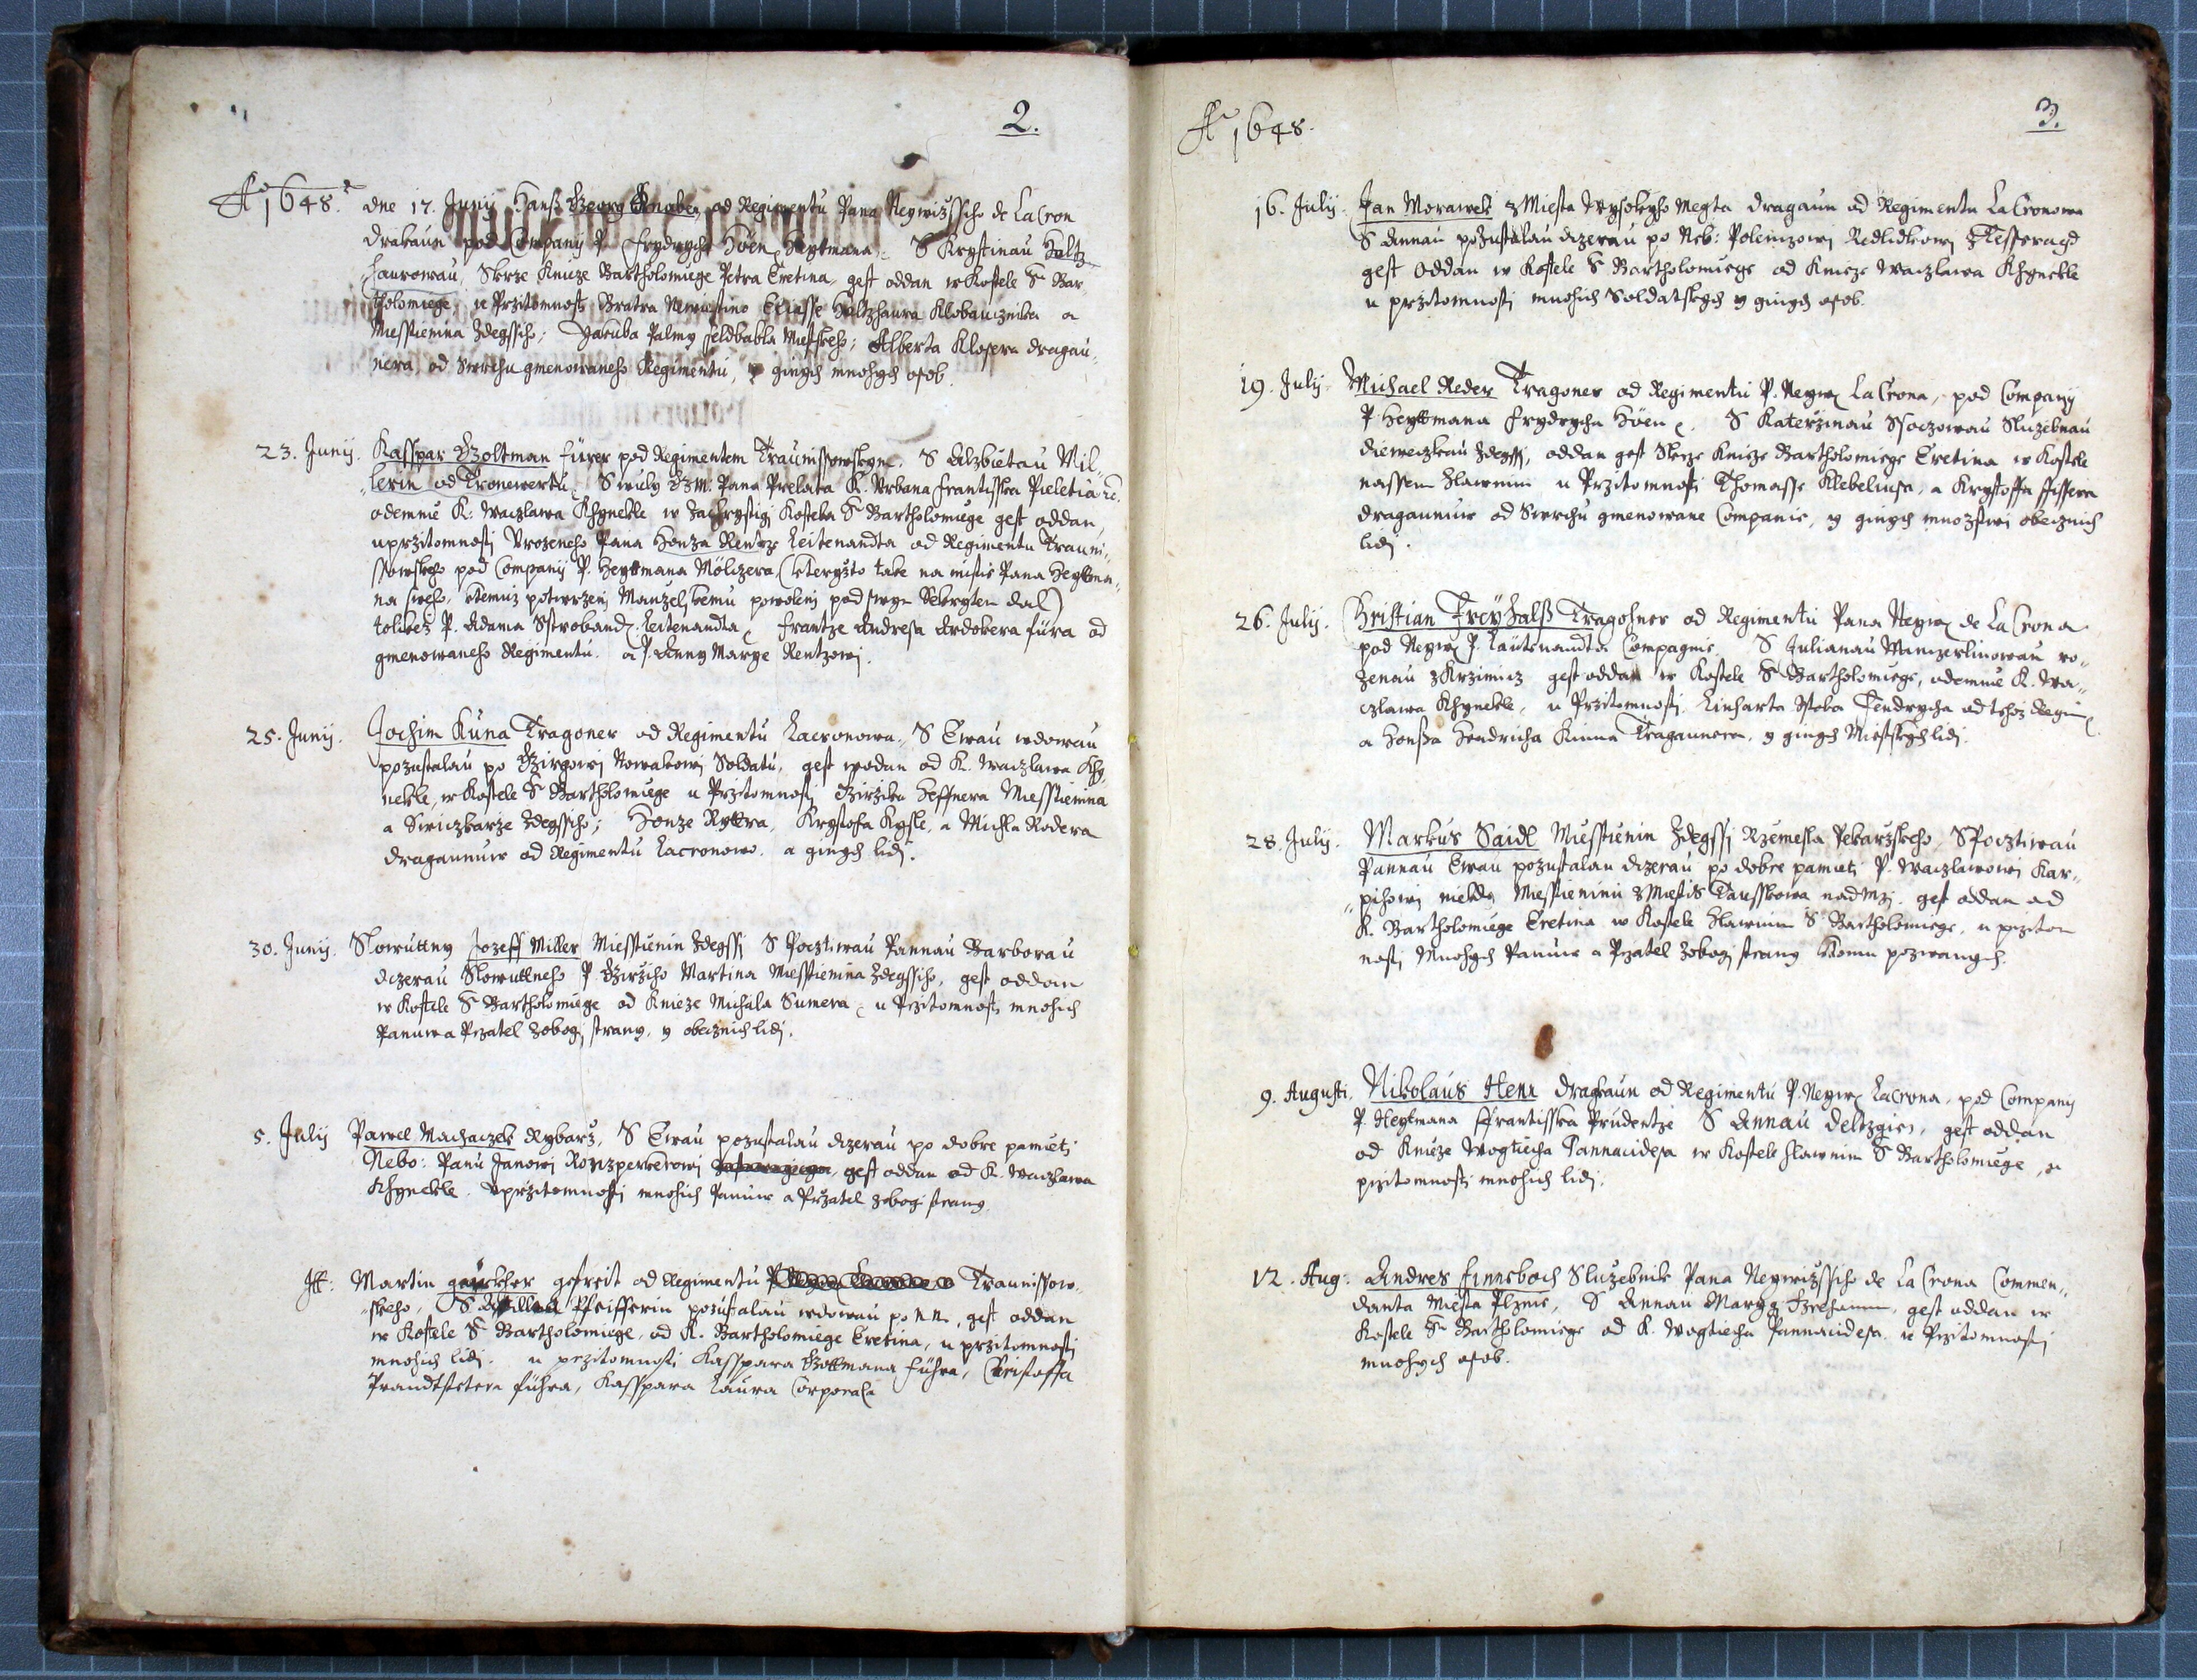 2.
Aº 1648. dne 17. Junij Hanß Georg Knaben od Regimentu Pana Neywiżssiho de La Cron
drakaun pod Companij P. Frydrycha Höen Heytmana, S Krystinau Holtz
haurowau, Skrze Knieze Bartholomiege Petra Cretina, gest oddan w Kostele S. Bar
tholomiege, u Przitomnosti Bratra Newiestino Eliasse Holtzhaura Klobaucznika a
Miesstienina Zdegssiho; Jakuba Palmy Feldbabla Miestskeho; Alberta Klosera dragau„
nera od Swrchu gmenowaneho Regimentu, y ginych mnohych osob.
23. Junij. Kasspar Goltman fürer pod Regimentem Traunissowskym, S Alzbietau Mil„
„lerin od Cronewertu, S wuly Geo M. Pana Prelata K. Urbana Frantisska Pieletia
odemnie K. Waczlawa Khynekle w Zachrystigi Kostela S. Bartholomiege gest oddan,
uprzitomnosti Urozeneho Pana Honza Rentze Leitenandta od Regimentu Trauni„
ssowskeho pod Companij P. Heyttmana Mölczera, (kteryżto take na mistie Pana Heytma„
na sweho, ktemuż potwrzenj Manzelskemu powolenj pod swym Sekrytem dal)
tolikéz P. Adama Sstroband. Leitenandta, Frantze Andresa Ardokera füra od
gmenowaneho Regimentu. a P. Anny Marye Rentzowj.
25. Junij. Jochim Kuna Tragoner od Regimentu Lacronowa, S Ewau wdowau
pozustalau po Girgowi Nowakowj Soldatu, gest wodan od K. Waczlawa Khy„
nekle, w Kostele S. Bartholomiege u Przitomnosti Girzika Heffnera Miesstienina
a Swiczkarze Zdegssiho; Honze Ryttra, Krystofa Kysle, a Michla Rodera
dragaunuw od Regimentu Lacronowo. a ginych lidj.
30. Junij. Slowuttny Jozeff Miller Miesstienin Zdegssj S Pocztiwau Pannau Barborau
dczerau Slowuttneho P. Girziho Martina Miesstienina Zdegssiho, gest oddan
w Kostele S. Bartholomiege od Knieze Michala Sumera, u Przitomnosti mnohich
Panuw a Przatel zobogj strany, y obecznich lidj.
5. Julij Pawel Machaczek Rybarz, S Ewau pozustalau dczerau po dobre pamieti
Nebo: Panu Janowj Roczperkerowj gest oddan od K. Waczlawa
Khynekle. Uprzitomnosti mnohich Panuw a Przatel zobogi strany
Itt: Martin gefreit od Regimentu Traunissow„
„skeho, S Pfeifferin pozustalau wdowau po N.N., gest oddan
w Kostele S. Bartholomiege, od K. Bartholomiege Cretina, u przitomnosti
mnohich lidj. u przitomnosti Kasspara Gottmana führa, Cristoffa
Prandtstetera führa, Kasspara Laura Corporala
Aº 1648.
3.
16. Julij. Jan Morawek z Miesta Wysokyho Meyta dragaun od Regimentu LaCronowa
S Annau pozustalau dczerau po Neb: Poleniczowj Redlickowj
gest oddan w Kostele S. Bartholomiege od Knieze Waczlawa Khynekle
u przitomnosti mnohich Soldatskych y ginych osob.
19. Julij. Michael Reder Tragoner od Regimentu P. Neyw. LaCrona, pod Companij
P. Heyttmana Frydrycha Höen, S Katerzinau Ssoczowau Sluzebnau
diewczkau Zdegssj, oddan gest Skrze Knieze Bartholomiege Cretina w Kostele
nassem Hlawnim u Przitomnosti Thomasse Klebeliusa, a Krystoffa Fissera
dragaunuw od Swrchu gmenowane Companie, y ginych mnozstwi obecznich
lidj.
26. Julij. Christian Freyhalß Tragohner od Regimentu Pana Neyw. de LaCrona
pod Neyw. P. Läutenandta Compagnie, S Julianau Manczerlinowau ro„
zenau z Krzimicz gest oddan w Kostele S. Bartholomiege, odemnie K. Wa„
czlawa Khynekle, u Przitomnosti Linharta Jakoba Fendrycha od tehoż Regim.
a Honßa Hendricha Kinna Tragaunera, y ginych Miestskych lidj.
28. Julij. Markus Saidl Miesstienin Zdegssj Rzemesla Pekarzskeho, S Pocztiwau
Pannau Ewau pozustalau dczerau po dobre pamieti P. Waczlawowi Kar„
„pihowi niekdy Miesstieninu z Miesta Tausskowa nad Mzj. gest oddan od
K. Bartholomiege Cretina w Kostele Hlawnim S. Bartholomiege, u przitom
nosti Mnohych Panuw a Przatel zobogj strany ktomu pozwanych.
9. Augusti. Nikolaus Henr dragkaun od Regimentu P. Neyw. LaCrona, pod Companij
P. Heytmana Frantisska Prudentze S Annau Deltzgies, gest oddan
od Knieze Wogtiecha Pannacidesa w Kostele hlawnim S. Bartholomiege, u
przitomnosti mnohich lidj.
12. Aug: Andres Finnebach Sluzebnik Pana Neywizssiho de LaCrona Commen„
danta Miesta Plznie, S Annau Maryg gest oddan w
Kostele S. Bartholomiege od K. Wogtiecha Pannacidesa u Przitomnosti
mnohych osob.